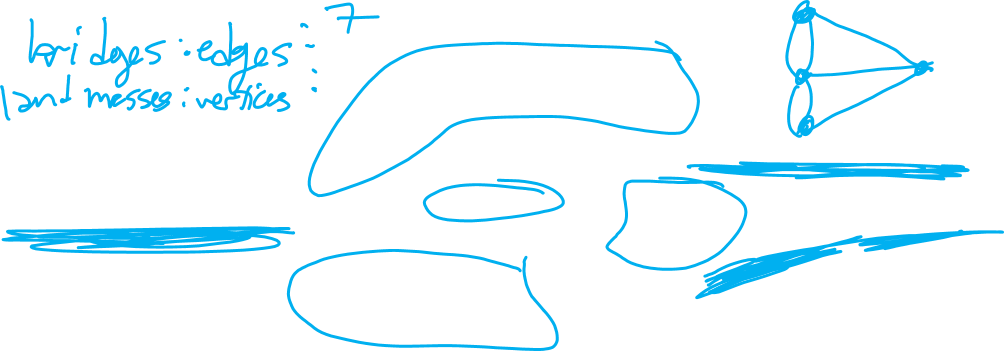 bridges : edges : 7
land masses : vertices :